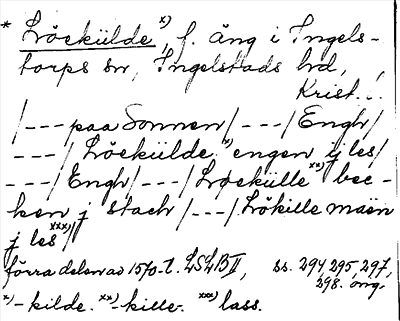 * Löekülde x), f. äng i Ingels-
torps sn, Ingelstads hd,
Krist. . .
/---paa Sonnen/---/Engh/
---/Löekülde x) engen ij les/
---/Engh/---/Løekülle xx) bec-
ken j stach/---/Lökille mäen
j les xxx)/
förra delen av 1570-t. LSLB II, ss. 294, 295, 297,
298. öng.
x)-kilde. xx)-kille. xxx) lass.